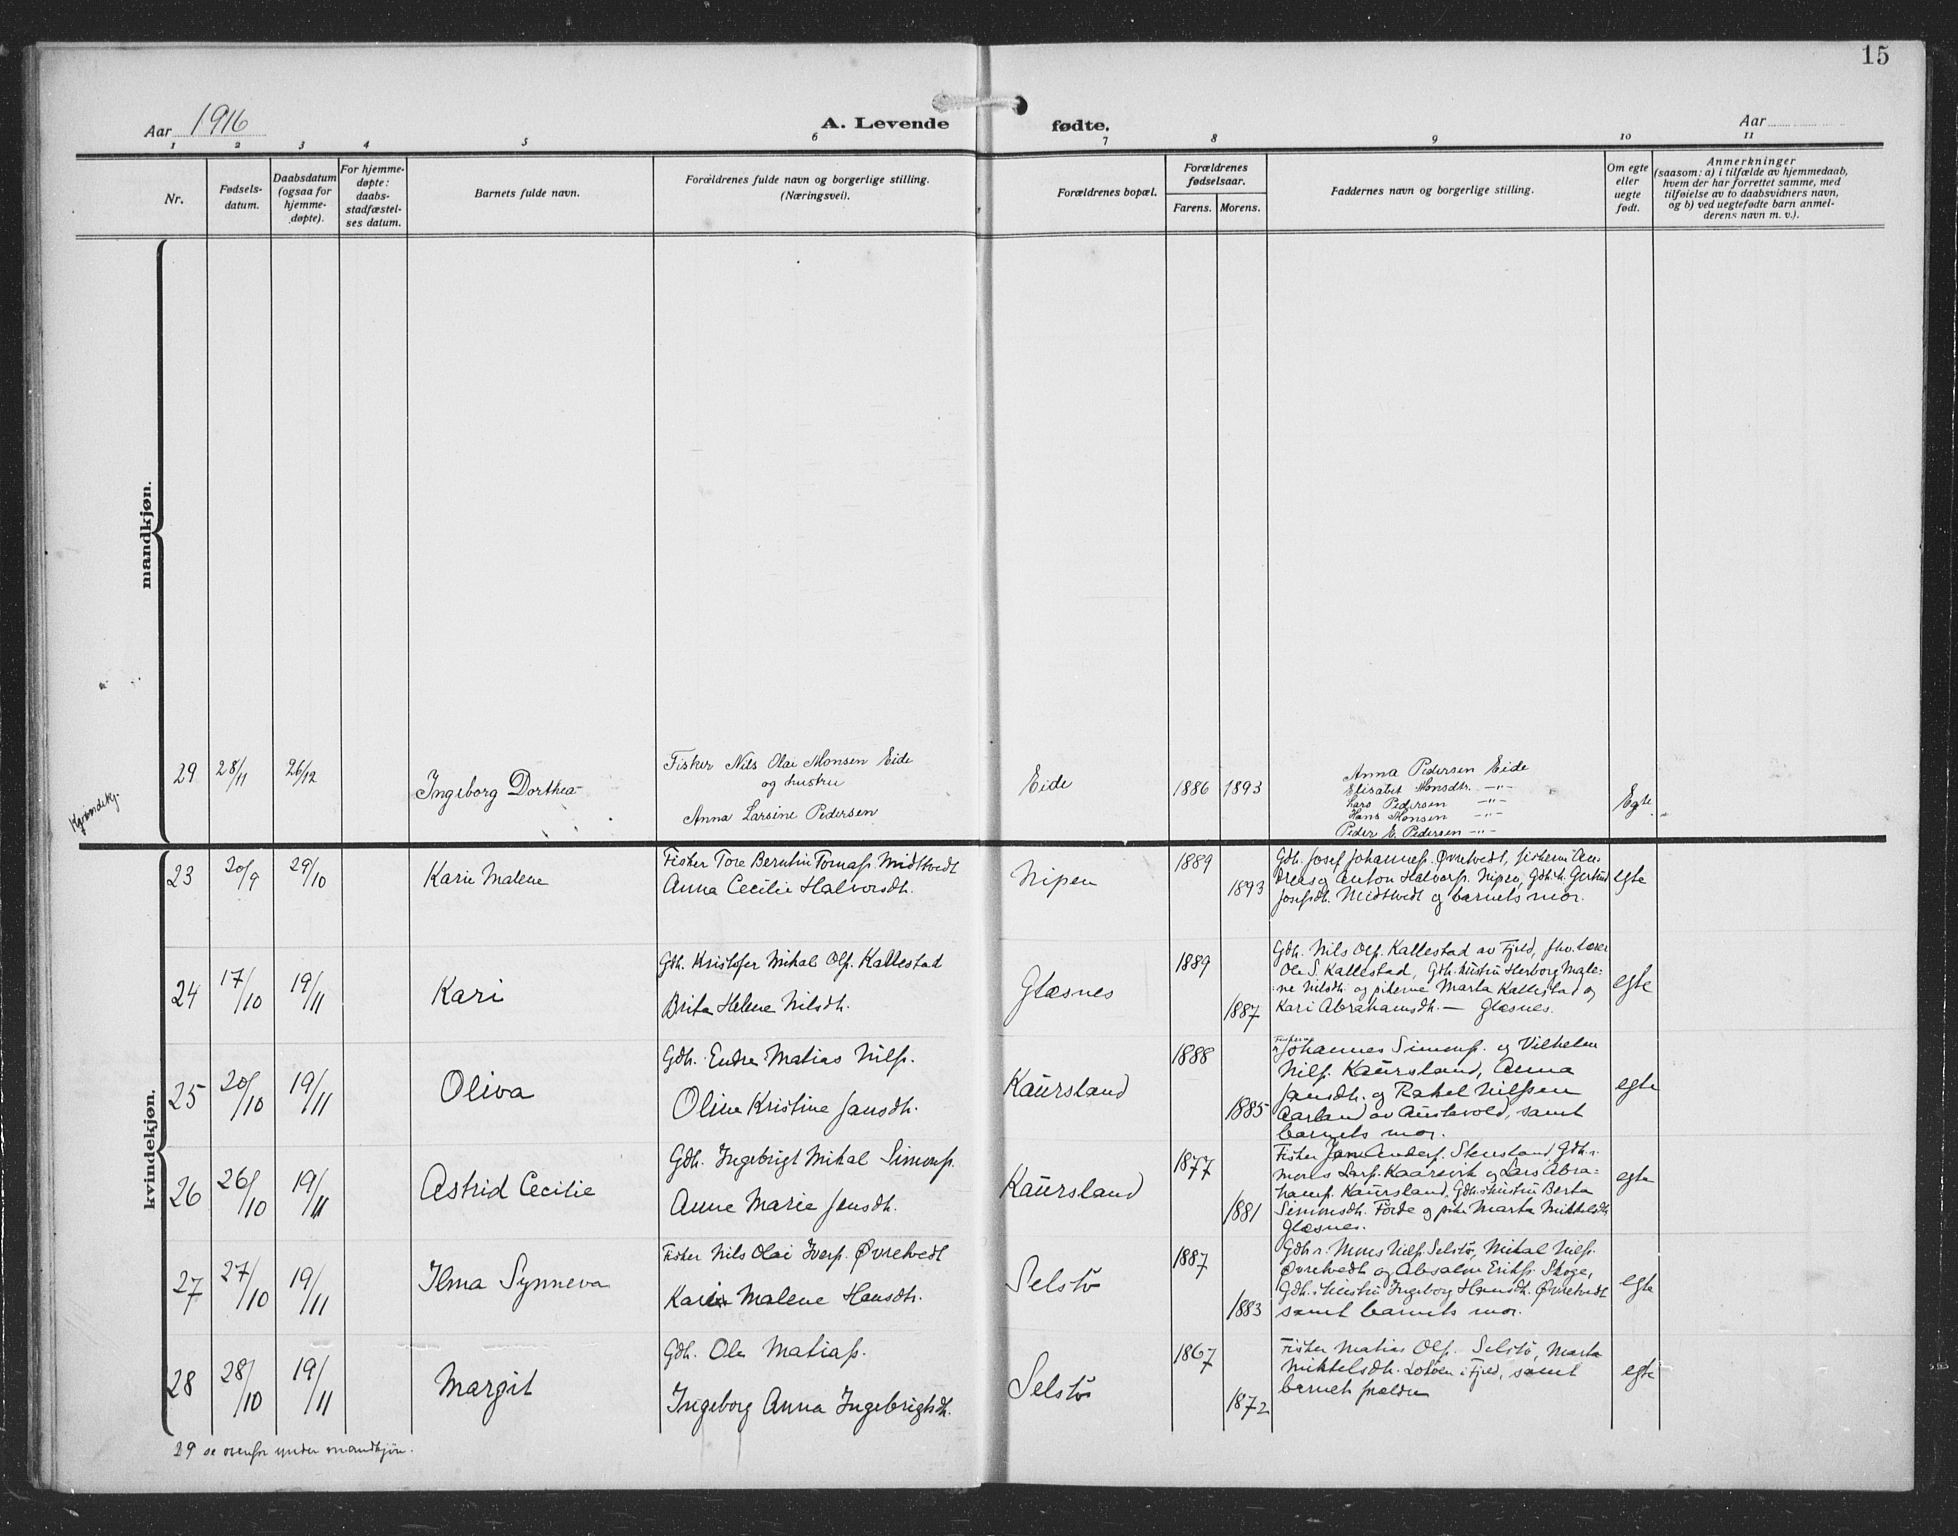 15
Aar 1916
A. Levende fødte.
Aar
1 2 3 4 5 6 7 8 9 10 11
Nr.
Fødsels-
datum.
Daabsdatum
(ogsaa for
hjemme-
døpte).
For hjemme-
døpte:
daabs-
stadfæstel-
ses datum.
Barnets fulde navn.
Forældrenes fulde navn og borgerlige stilling.
(Næringsvei).
Forældrenes bopæl.
Forældrenes
fødselsaar.
Farens. Morens.
Faddernes navn og borgerlige stilling.
Om egte
eller
uegte
født.
Anmerkninger
(saasom: a) i tilfælde av hjemmedaab,
hvem der har forrettet samme, med
tilføielse av to daabsvidners navn,
og b) ved uegtefødte barn anmel-
derens navn m. v.).
mandkjøn.
Kvindekj.
29 28/11 26/12
Ingeborg Dorthea
Fisker Nils Olai Monsen Eide
og hustru
Anna Larsine Pedersen
Eide
1886 1893
Anna Pedersen Eide
Elisabet Monsdtr. -"-
Lars Pedersen -"-
Hans Monsen -"-
Peder E. Pedersen -"-
Egte
kvindekjøn.
23 20/9 29/10
Karie Malene
Fisker Tore Berntin Tornass. Midttvedt
Anna Cecilie Halvorsdh.
Nipen
1889
1893
Gdh. Josef Johanness. Øvretvedt, fiskerne An-
dreas og Anton Halvors. Nipen, Gdh.h. Gertrud
Josefsdh. Midttvedt og barnets mor.
egte
24 17/10 19/11
Kari
Gdh. Kristofer Mikal Ols. Kallestad
Brita Helene Nilsdh.
Glæsnes
1889
1887
Gdh. Nils Ols. Kallestad av Fjeld, fhv. lærer
Ole S. Kallestad, Gdh. hustru Herborg Male-
ne Nilsdh. og pikerne Marta Kallestad og
Kari Abrahamsdh. — Glæsnes.
egte
25 20/10 19/11
Oliva
Gdh. Endre Matias Nilss.
Oline Kristine Jansdh.
Kaursland
1888
1885
Johannes Simons. og Vilhelm
Nilss. Kaursland, Anna
Jansdh. og Rakel Nilssen
Aarland av Austevold, samt
barnets mor.
egte
26 26/10 19/11
Astrid Cecilie
Gdh. Ingebrigt Mikal Simons.
Anne Marie Jensdh.
Kaursland
1877
1881
Fisker Jan Anders. Stensland, Gdh.r.
Mons Lars. Kaarevik og Lars Abra-
hams. Kaursland, Gdh. hustru Berta
Simonsdh. Førde og pike Marta Mikkelsdh.
Glæsnes.
egte
27 27/10 19/11
Ilma Synneva
Fisker Nils Olai Ivers. Øvretvedt
Karie Malene Hansdh.
Selstø
1887
1883
Gdh.r. Mons Nilss. Selstø, Mikal Nilss.
Øvretvedt og Absalon Eriks. Skoge,
Gdh. hustru Ingeborg Hansdh. Øvretvedt
samt barnets mor.
egte
28 28/10 19/11
Margit
Gdh. Ole Matiass.
Ingeborg Anna Ingebrigtsdh.
Selstø
1867
1872
Fisker Matias Ols. Selstø, Marta
Mikkelsdh. i Fjeld, samt
barnets foreldre
egte
29 se ovenfor under mandkjøn.